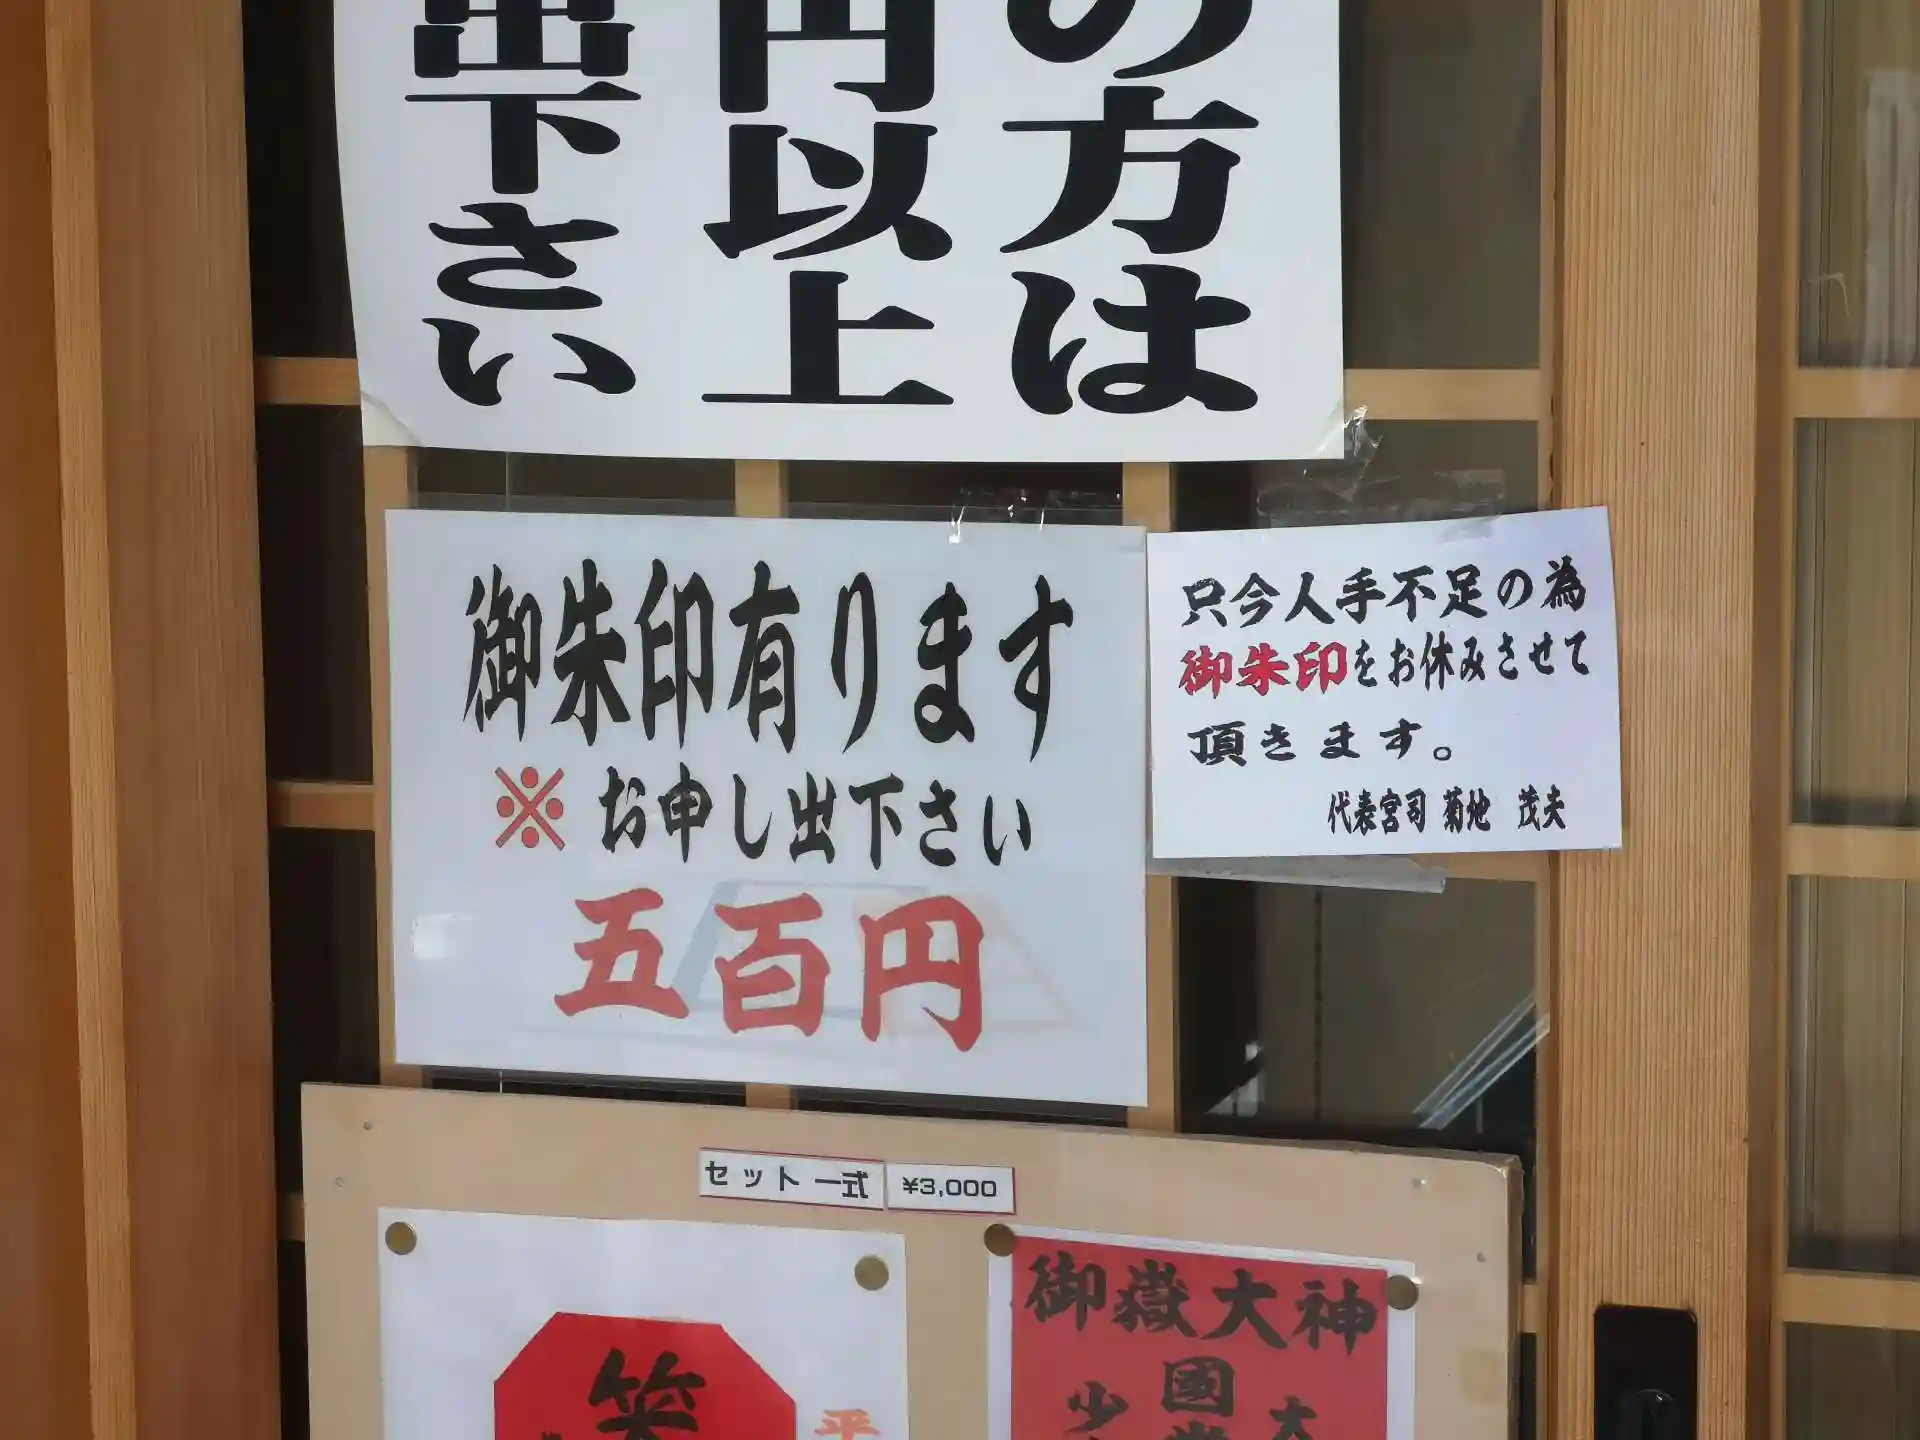 の方は
円以上
出下さい
御朱印有ります
※ お申し出下さい
五百円
只今人手不足の為
御朱印をお休みさせて
頂きます。
代表宮司 菊地 茂夫
セット一式 ¥3,000
笑
平
御嶽大神
國
少
大